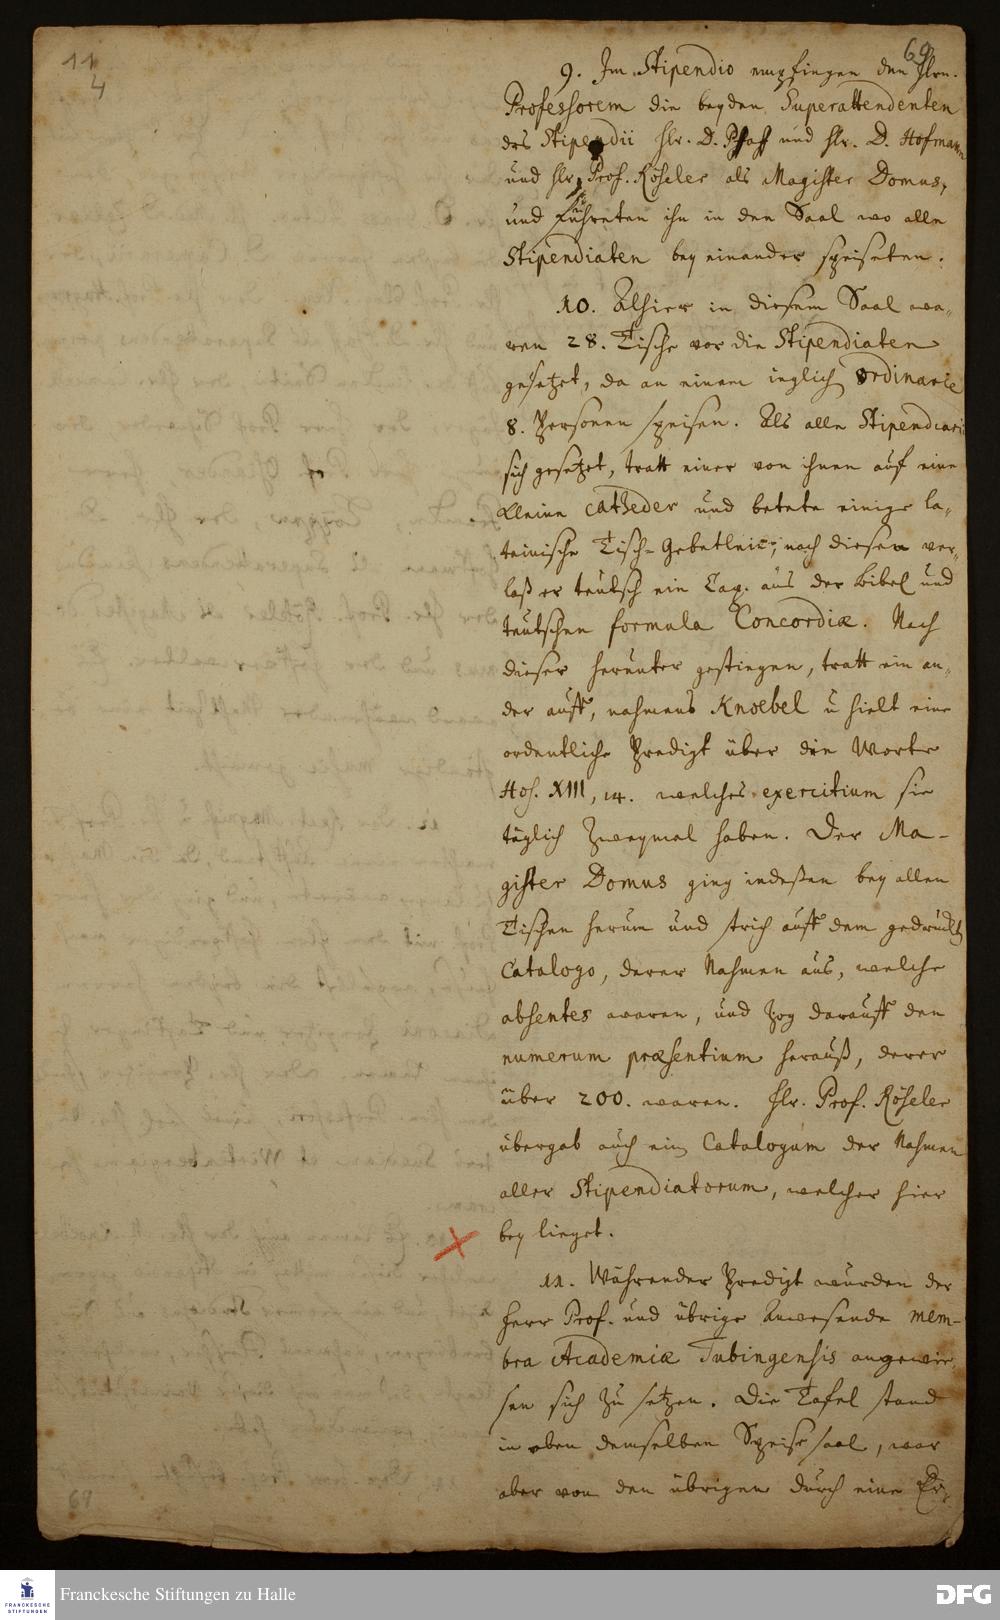 11
4
69
9. Im Stipendio empfingen den Hrn.
Professorem die beyden Superattendenten
des Stipendii Hr. D. Pfaff und Hr. D. Hofmann
und Hr. Prof. Röseler als Magister Domus,
und führeten ihn in den Saal wo alle
Stipendiaten bey einander speiseten.
10. Alhier in diesem Saal wa-
ren 28. Tische vor die Stipendiaten
gesetzet, da an einem ieglich ordinarie
8. Personen speisen. Als alle Stipendiarii
sich gesetzet, tratt einer von ihnen auf eine
kleine Catheder und betete einige la-
teinische Tisch-Gebetlein; nach diesem ver-
laß er teutsch ein Cap. aus der Bibel und
teutschen formula Concordiæ. Nach
dieser herunter gestiegen, tratt ein an-
der auff, nahmens Knoebel u hielt eine
ordentliche Predigt über die Worte
Hos. XIII, 14. welches exercitium sie
täglich zweymal haben. Der Ma-
gister Domus ging indeßen bey allen
Tischen herum und strich auff dem gedruckten
Catalogo, derer Nahmen aus, welche
absentes waren, und zog darauff den
numerum præsentium herauß, derer
über 200. waren. Hr. Prof. Röseler
übergab auch ein Catalogum der Nahmen
aller Stipendiatorum, welcher hier
bey lieget.
11. Währender Predigt wurden der
Herr Prof. und übrige Anwesende mem-
bra Academiæ Tubingensis angewie-
sen sich zu setzen. Die Tafel stand
in eben demselben Speise saal, war
aber von den übrigen durch eine Er-
69
FRANCKESCHE
STIFTUNGEN
Franckesche Stiftungen zu Halle
DFG